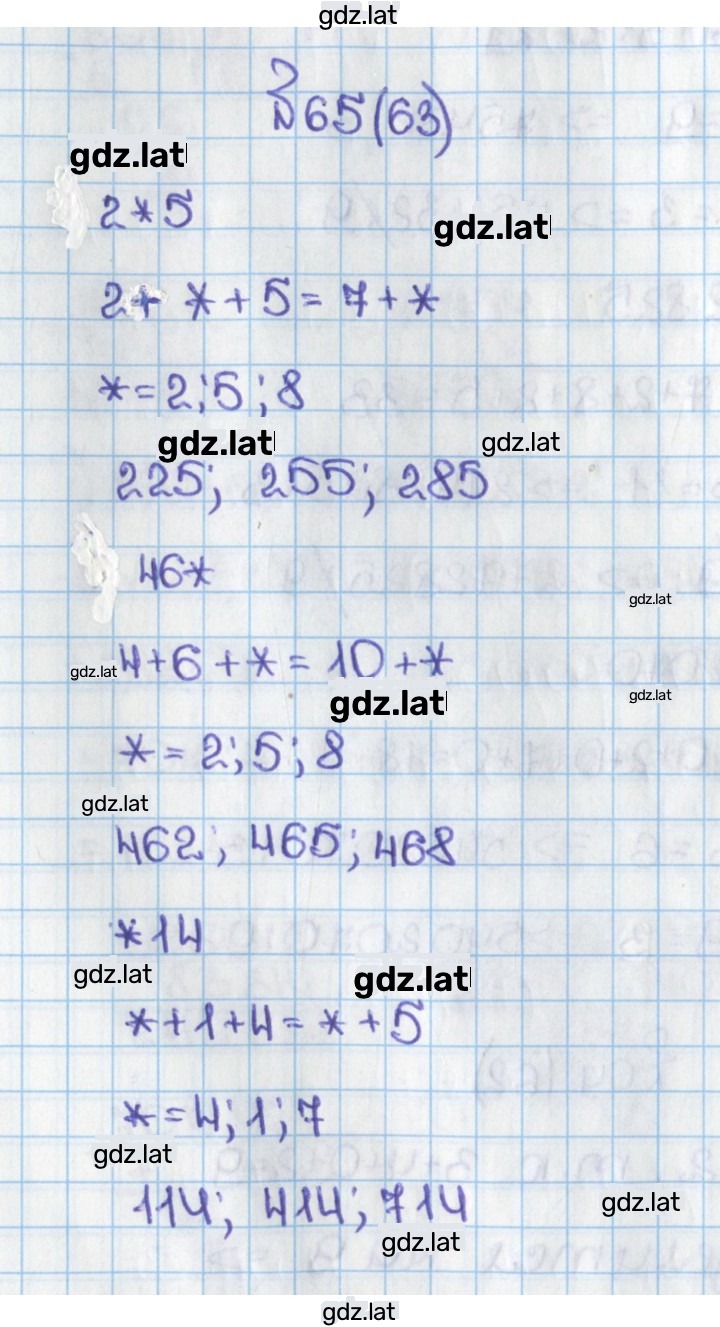 gdz.lat
№65(63)
gdz.lat
2*5
gdz.lat
2+ * + 5 = 7 + *
* = 2; 5; 8
gdz.lat
gdz.lat
225; 255; 285
46*
gdz.lat
gdz.lat
4+6 + * = 10 + *
gdz.lat
gdz.lat
* = 2; 5; 8
gdz.lat
462; 465; 468
*14
gdz.lat
gdz.lat
* + 1 + 4 = * + 5
* = 4; 1; 7
gdz.lat
114; 414; 714
gdz.lat
gdz.lat
gdz.lat